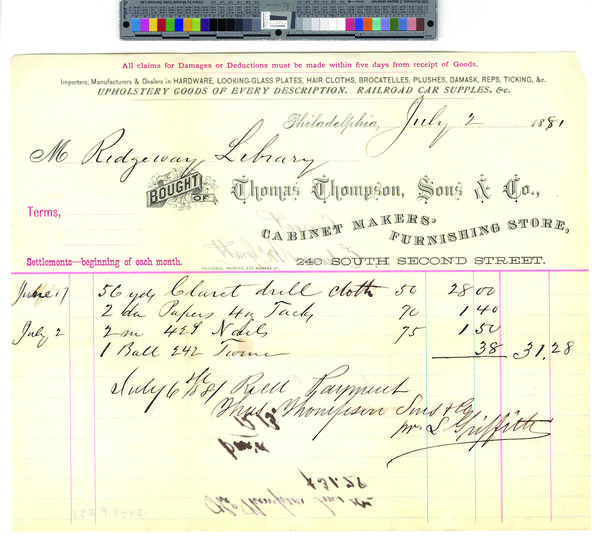 All claims for Damages or Deductions must be made within five days from receipt of Goods.
Importers, Manufacturers & Dealers in HARDWARE, LOOKING-GLASS PLATES, HAIR CLOTHS, BROCATELLES, PLUSHES, DAMASK, REPS, TICKING, &c.
UPHOLSTERY GOODS OF EVERY DESCRIPTION. RAILROAD CAR SUPPLIES, &c.
Philadelphia, July 2 1881
M Ridgeway Library
BOUGHT OF Thomas Thompson, Sons & Co.,
Terms,
CABINET MAKERS' FURNISHING STORE,
Settlements—beginning of each month.
240 SOUTH SECOND STREET.
June 17 56 yds Claret drill cloth 50 28 00
2 dz Papers 4oz Tacks 70 1 40
July 2 2 m Nails 75 1 50
1 Ball 242 Twine 38 31.28
July 6th 1881 Recd Payment
Thos Thompson Sons & Co
pr L Griffith
$31.28
Thos Thompson Sons &c